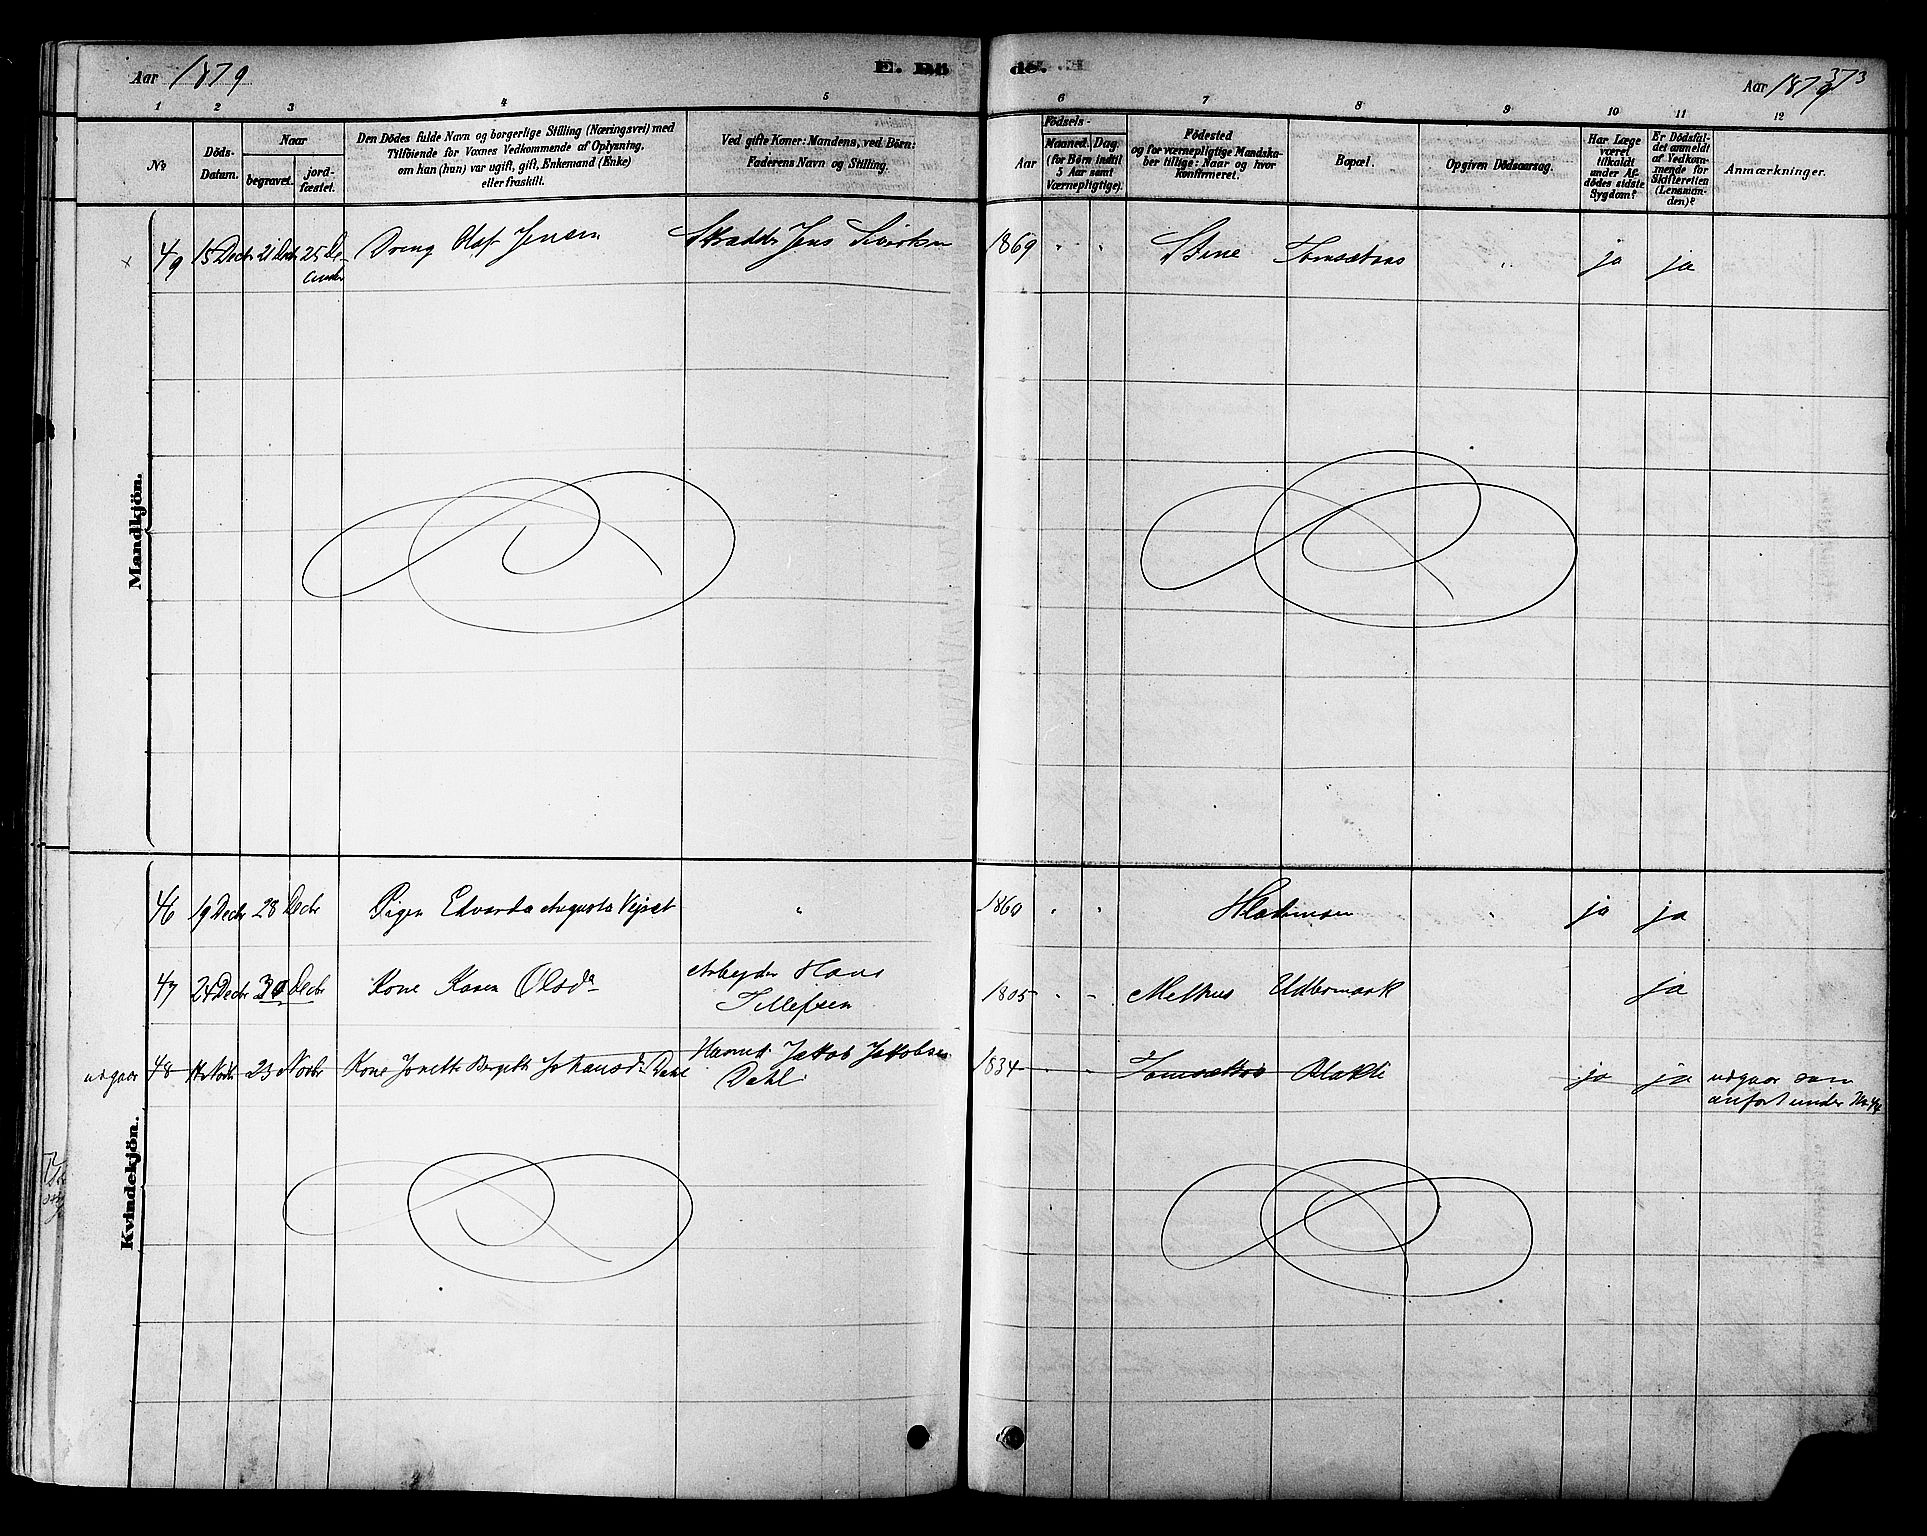 Aar 1879
E. Dö
de.
Aar 1879
373
1 2 3 4 5 6 7 8 9 10 11 12
No
Döds-
Datum.
Naar
begravet.
jord-
fæstet.
Den Dödes fulde Navn og borgerlige Stilling (Næringsvei) med
Tilföiende for Voxnes Vedkommende af Oplysning,
om han (hun) var ugift, gift, Enkemand (Enke)
eller fraskilt.
Ved gifte Koner: Mandens, ved Börn:
Faderens Navn og Stilling.
Födsels-
Aar
Maaned. Dag.
(for Börn indtil
5 Aar samt
Værnepligtige).
Födested
og for værnepligtige Mandska-
ber tillige: Naar og hvor
konfirmeret.
Bopæl.
Opgiven Dödsaarsag.
Har Læge
været
tilkaldt
under Af-
dödes sidste
Sygdom?
Er Dödsfal-
det anmeldt
af Vedkom-
mende for
Skifteretten
(Lensman-
den)?
Anmærkninger.
Mandkjön.
49 15 Decbr 21 Decbr 25 De-
cember
Dreng Olaf Jensen
Jens
1869 " " " ja ja
Kvindekjön.
46 19 Decbr 28 Decbr Pigen Edvarda Augusta " 1860 " " " ja ja
47 24 Decbr 30 Decbr Kone Karen Olsda
Arbeyder Hans
Tillefsen
1805 " " Melhus Udbermark ja
udgaar 48 23 Novbr Kone Jonette Bergitte Johansd. Dahl
Jakob Jakobsen
Dahl
1834 " " Blakli ja ja
udgaar som
anført under No 44